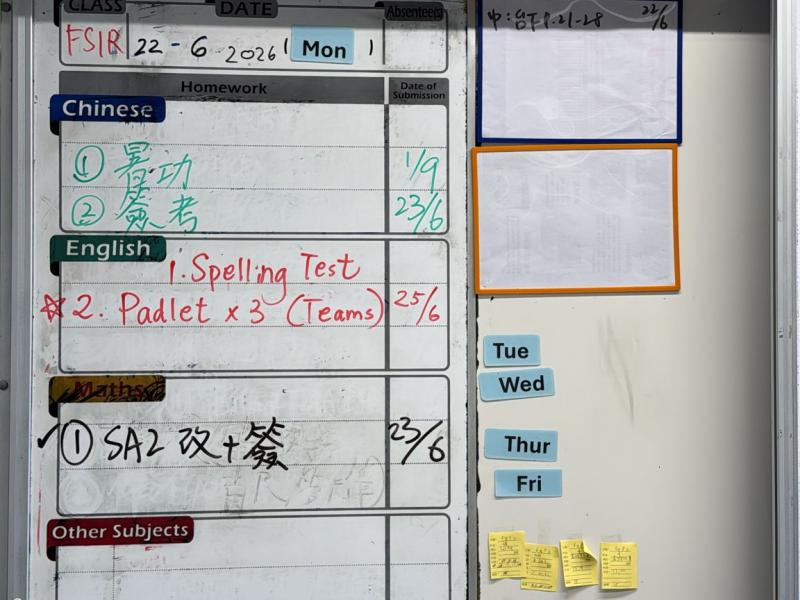 CLASS DATE Absentee(s)
FSIR 22-6 2026 ( Mon )
Homework Date of Submission
Chinese
① 暑功 1/9
② 簽考 23/6
English
1. Spelling Test
☆ 2. Padlet x 3 (Teams) 25/6
Maths
✓ ① SA2 改+簽 23/6
Other Subjects
22/6
Tue
Wed
Thur
Fri